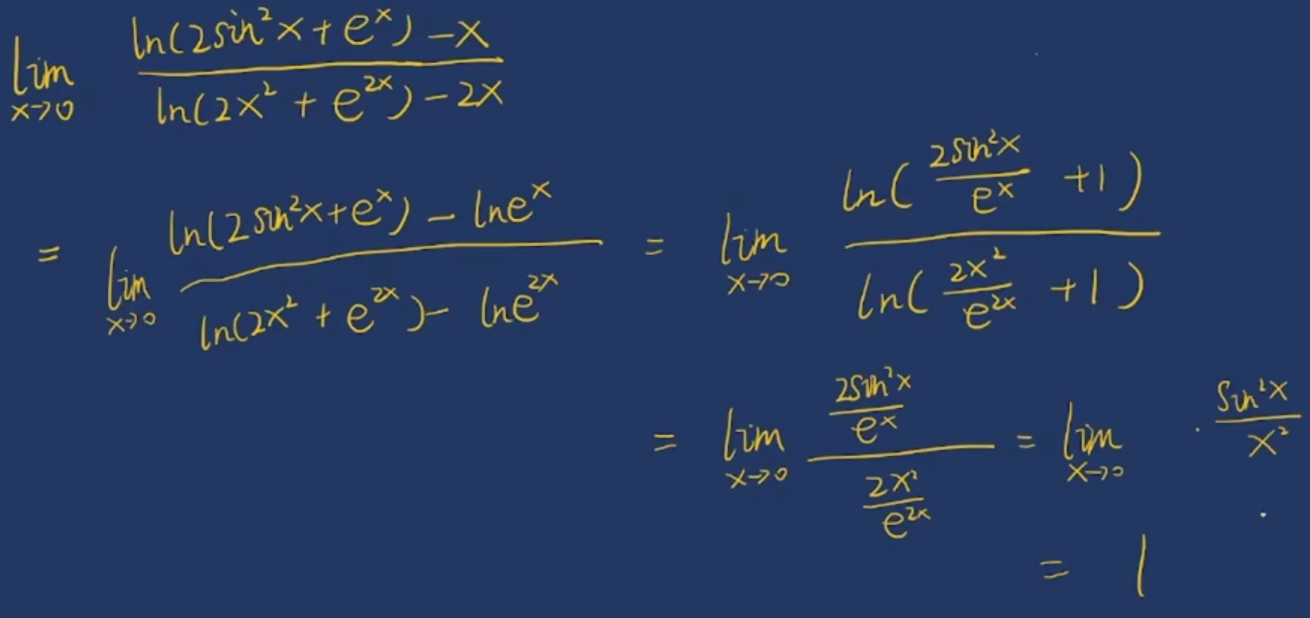 lim x→0 (ln(2sin²x + eˣ) − x) / (ln(2x² + e²ˣ) − 2x)
= lim x→0 (ln(2sin²x + eˣ) − lneˣ) / (ln(2x² + e²ˣ) − lne²ˣ) = lim x→0 ln(2sin²x/eˣ + 1) / ln(2x²/e²ˣ + 1)
= lim x→0 (2sin²x/eˣ) / (2x²/e²ˣ) = lim x→0 · sin²x/x²
= 1